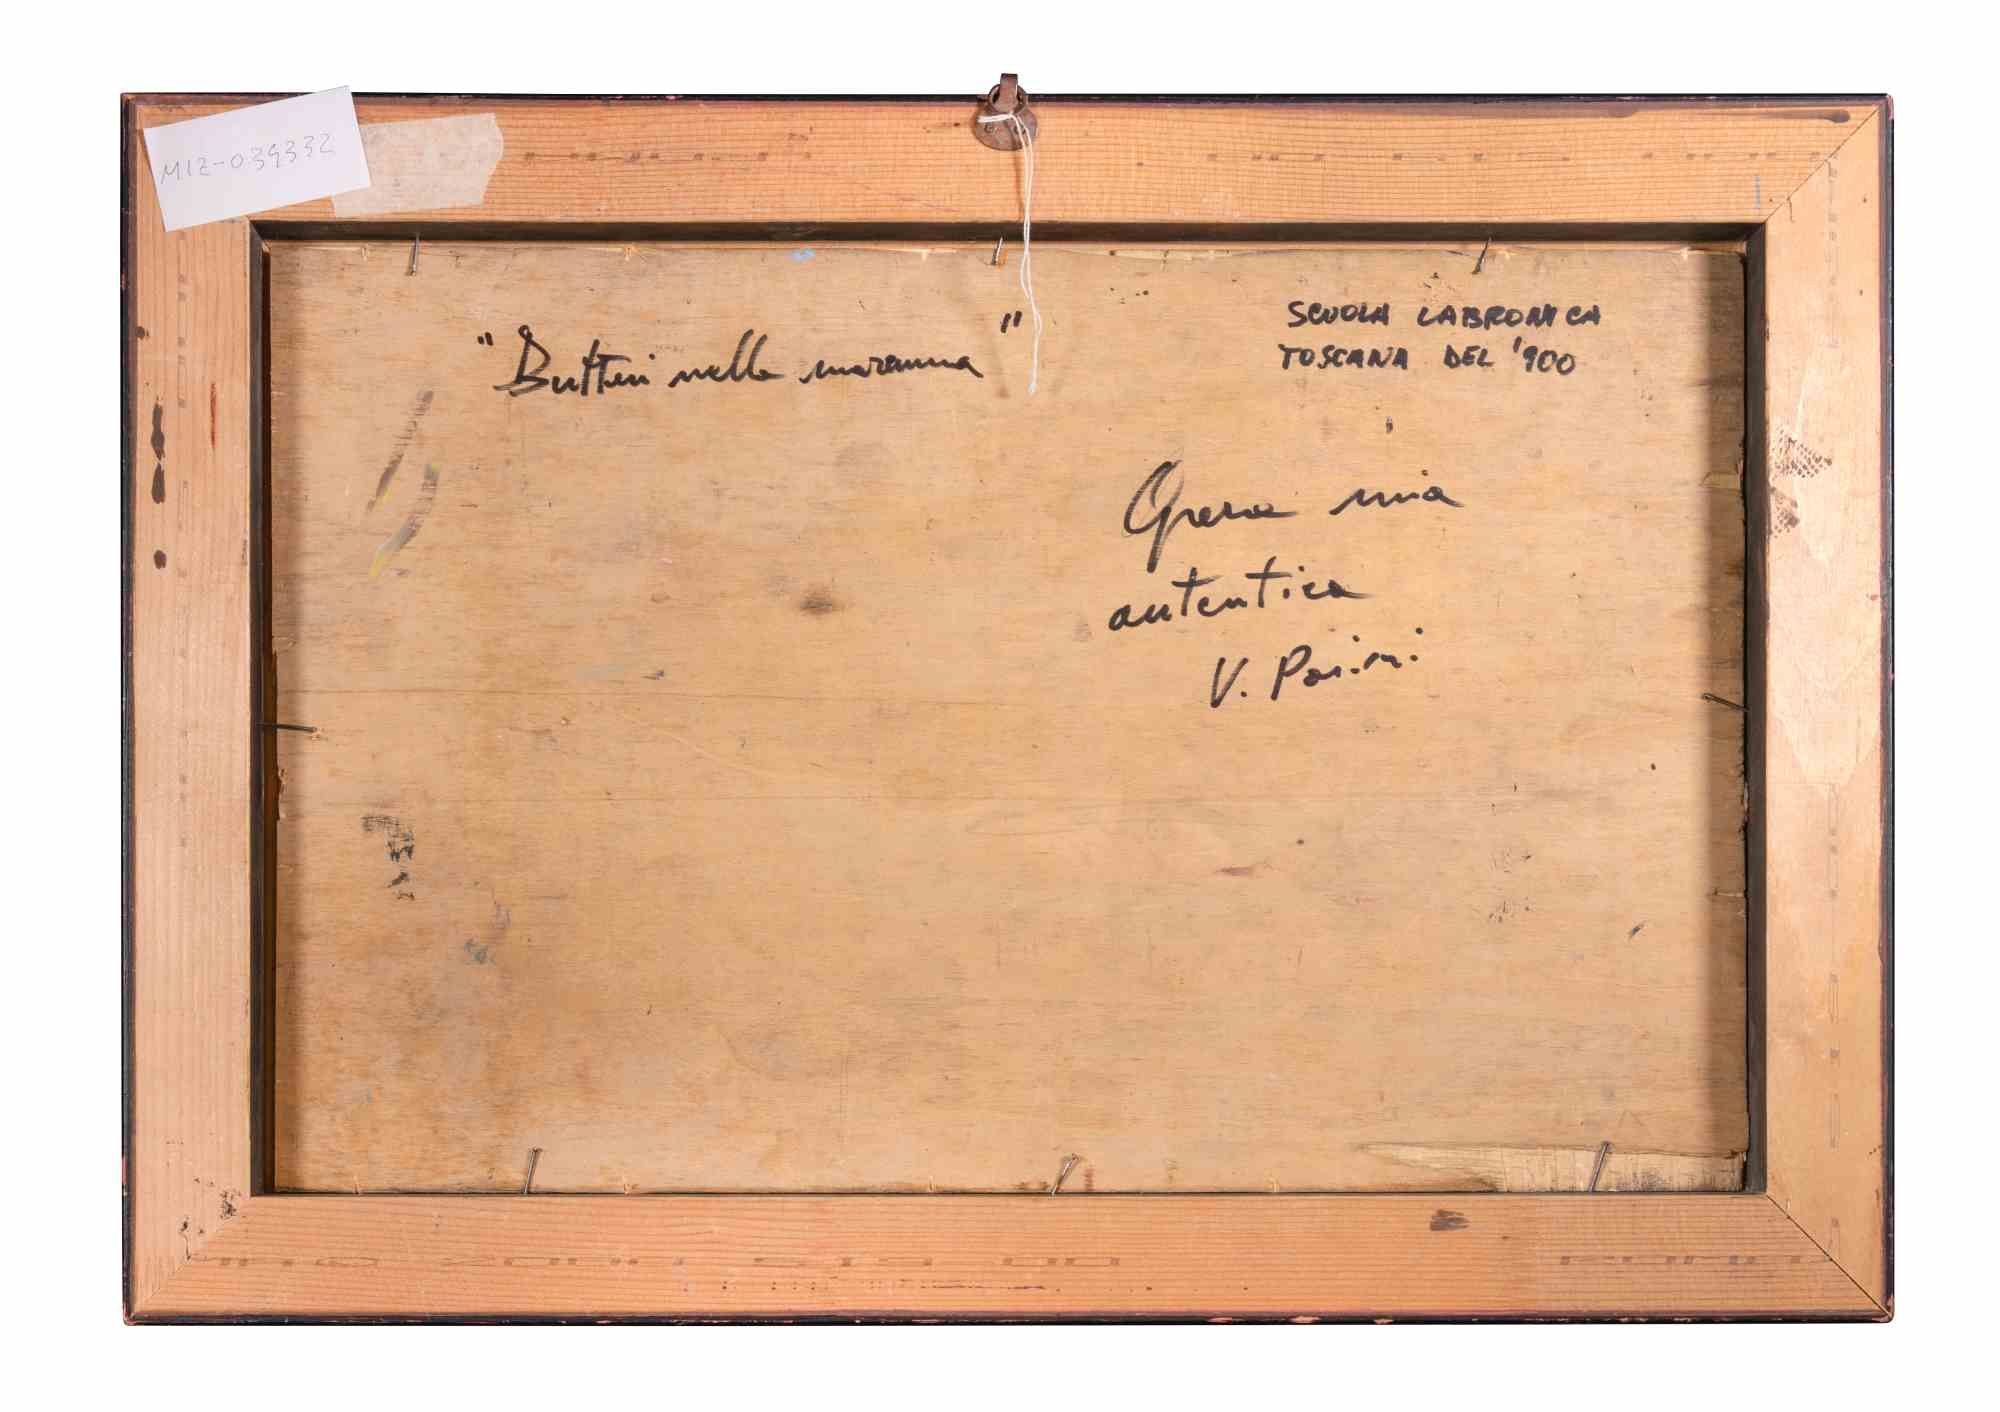 M12-039332
"Butteri nella maremma"
SCUOLA LABRONICA
TOSCANA DEL '900
Opera mia
autentica
V.